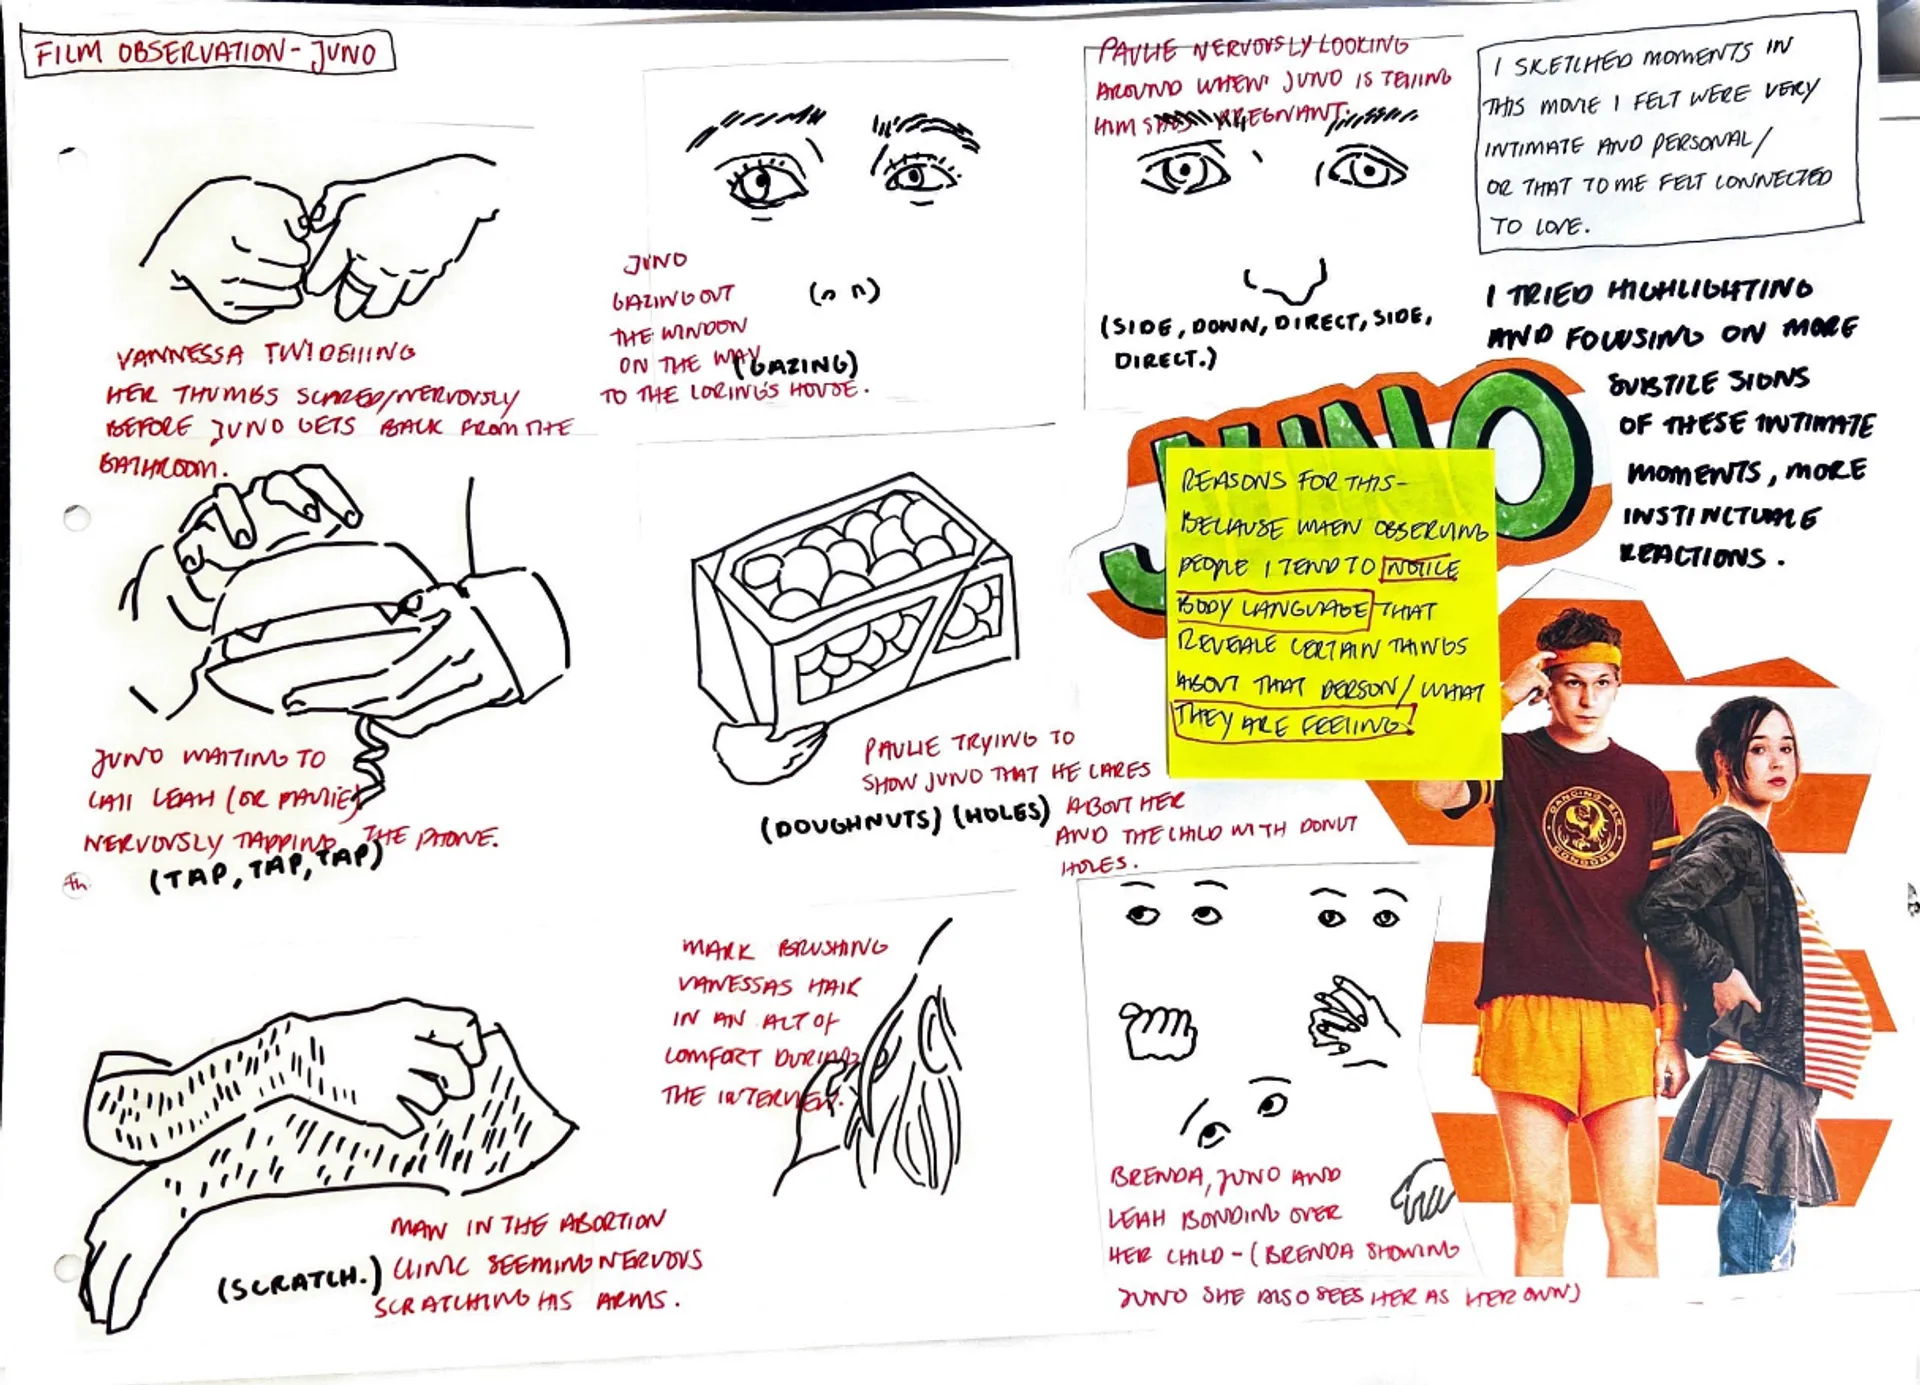 FILM OBSERVATION - JUNO
VANNESSA TWIDELLING
HER THUMBS SCARED/NERVOUSLY
BEFORE JUNO GETS BACK FROM THE
BATHROOM.
JUNO
GAZING OUT
THE WINDOW
ON THE WAY
TO THE LORING'S HOUSE.
(GAZING)
PAULIE NERVOUSLY LOOKING
AROUND WHEN JUNO IS TELLING
HIM SHES PREGNANT.
(SIDE, DOWN, DIRECT, SIDE,
DIRECT.)
I SKETCHED MOMENTS IN
THIS MOVIE I FELT WERE VERY
INTIMATE AND PERSONAL/
OR THAT TO ME FELT CONNECTED
TO LOVE.
I TRIED HIGHLIGHTING
AND FOCUSING ON MORE
SUBTILE SIGNS
OF THESE INTIMATE
MOMENTS, MORE
INSTINCTUALE
REACTIONS.
JUNO
REASONS FOR THIS-
BECAUSE WHEN OBSERVING
PEOPLE I TEND TO NOTICE
BODY LANGUAGE THAT
REVEALE CERTAIN THINGS
ABOUT THAT PERSON/WHAT
THEY ARE FEELING.
JUNO WAITING TO
CALL LEAH (OR PAULIE)
NERVOUSLY TAPPING THE PHONE.
(TAP, TAP, TAP)
PAULIE TRYING TO
SHOW JUNO THAT HE CARES
ABOUT HER
AND THE CHILD WITH DONUT
HOLES.
(DOUGHNUTS) (HOLES)
DANCING ELK
CONDORS
MAN IN THE ABORTION
CLINIC SEEMING NERVOUS
SCRATCHING HIS ARMS.
(SCRATCH.)
MARK BRUSHING
VANESSAS HAIR
IN AN ACT OF
COMFORT DURING
THE INTERVIEW.
BRENDA, JUNO AND
LEAH BONDING OVER
HER CHILD - (BRENDA SHOWING
JUNO SHE ALSO SEES HER AS HER OWN)